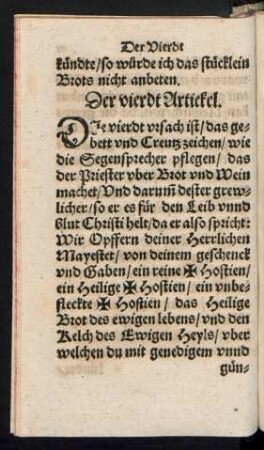 Der Vierdt
kündte/so würde ich das stücklein
Brots nicht anbeten.
Der vierdt Artickel.
DIe vierdt vrsach ist/das ge-
bett vnd Creutzzeichen/wie
die Segensprecher pflegen/das
der Priester vber Brot vnd Wein
machet/Vnd darum̃ dester grew-
licher/so er es für den Leib vnnd
Blut Christi helt/da er also spricht:
Wir Opffern deiner Herrlichen
Mayestet/von deinem geschenck
vnd Gaben/ein reine ✠ Hostien/
ein Heilige ✠ Hostien/ein vnbe-
fleckte ✠ Hostien/das Heilige
Brot des ewigen lebens/vnd den
Kelch des Ewigen Heyls/vber
welchen du mit genedigem vnnd
gün-